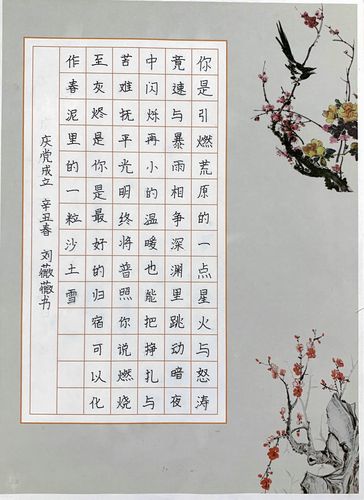 你是引燃荒原的一点星火与怒涛
竞速与暴雨相争深渊里跳动暗夜
中闪烁再小的温暖也能把挣扎与
苦难抚平光明终将普照你说燃烧
至灰烬是你是最好的归宿可以化
作春泥里的一粒沙土雪
庆党成立 辛丑春 刘薇薇书